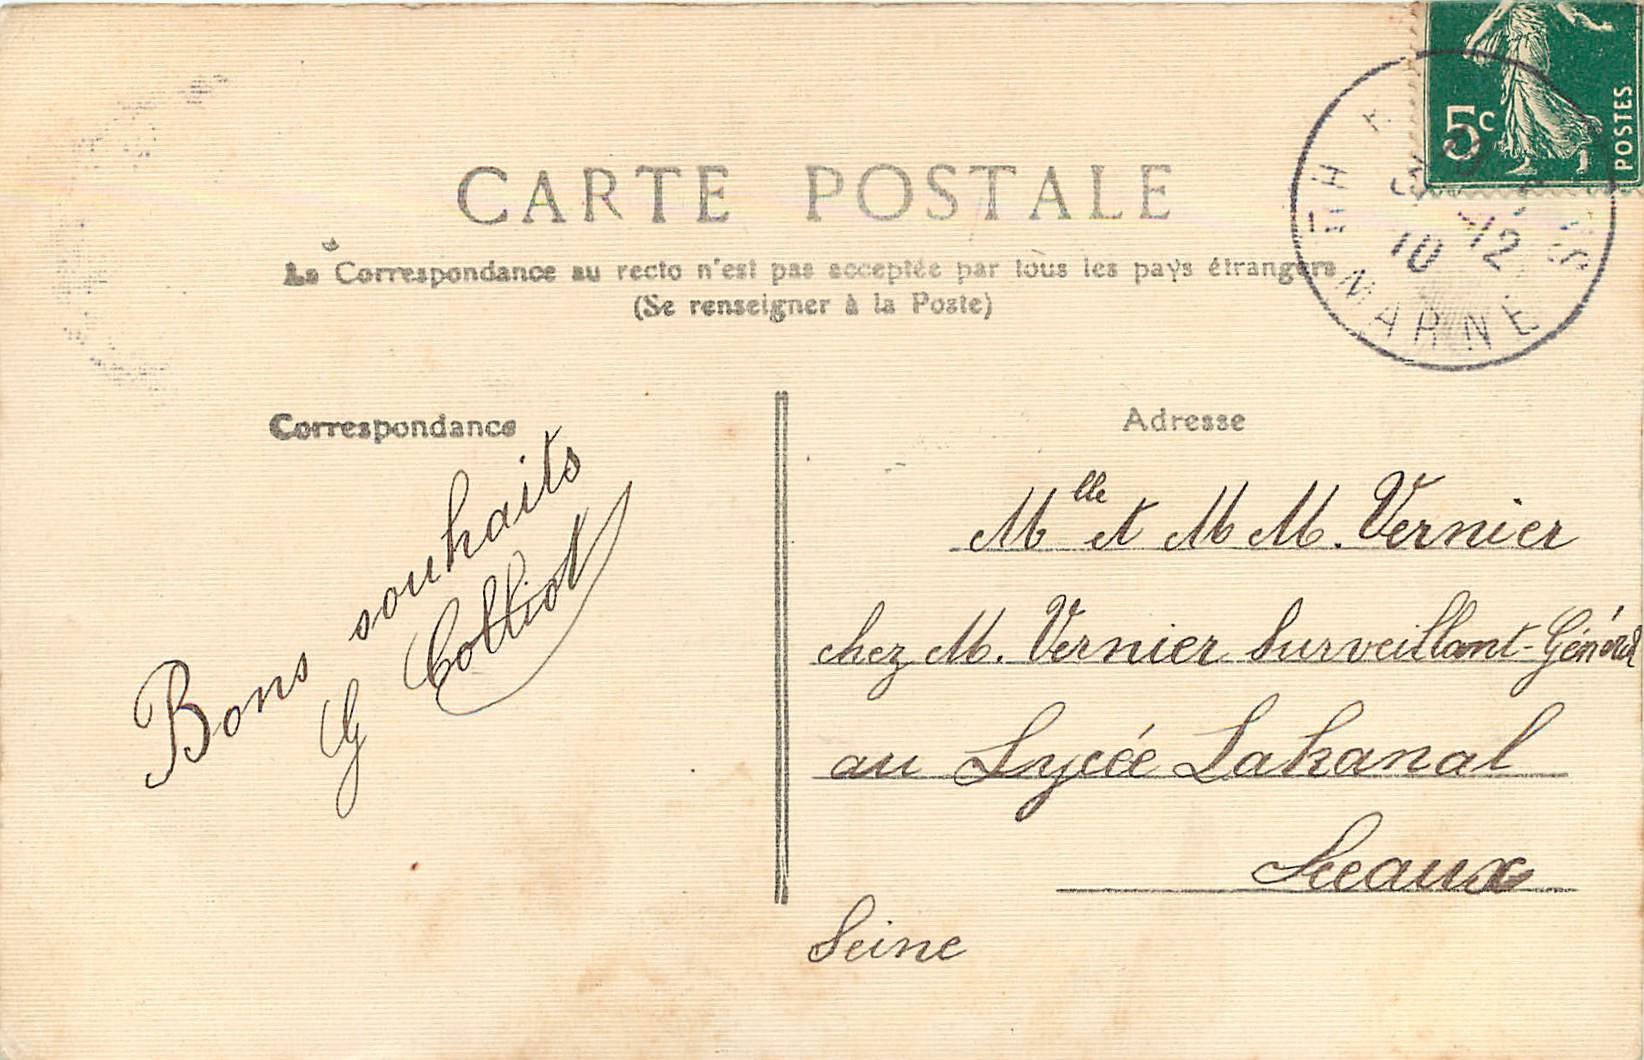 CARTE POSTALE
La Correspondance au recto n'est pas acceptée par tous les pays étrangers
(Se renseigner à la Poste)
5c
POSTES
10 12
MARNE
Correspondance
Bons souhaits
G Colliot
Adresse
Mlle et M M. Vernier
chez M. Vernier Surveillant-Général
au Lycée Lakanal
Sceaux
Seine